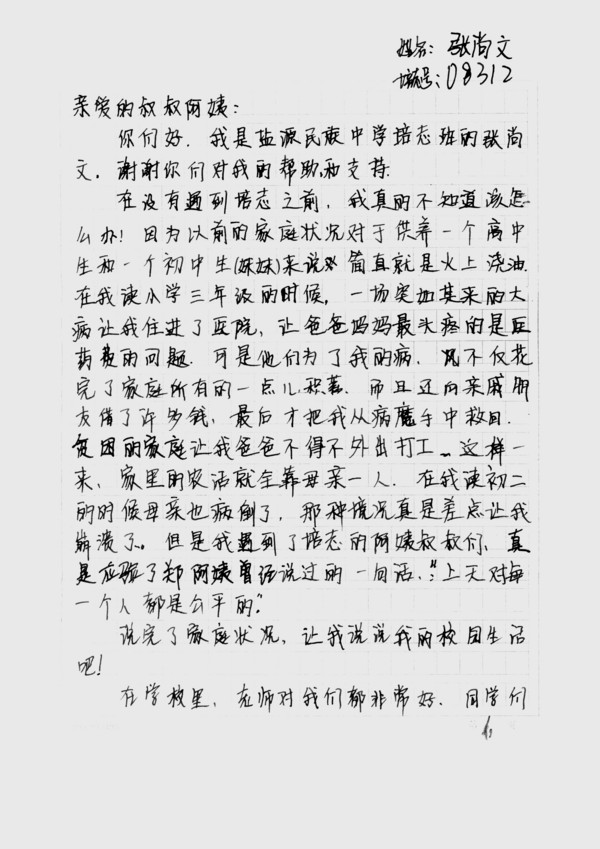 姓名：张尚文
编号：08312
亲爱的叔叔阿姨：
你们好．我是盐源民族中学培志班的张尚
文．谢谢你们对我的帮助和支持.
在没有遇到培志之前，我真的不知道该怎
么办！因为以前的家庭状况对于供养一个高中
生和一个初中生(妹妹)来说 简直就是火上浇油.
在我读小学三年级的时候，一场突如其来的大
病让我住进了医院，让爸爸妈妈最头疼的是巨
药费的问题．可是他们为了我的病． 不仅花
完了家庭所有的一点儿积蓄．而且还向亲戚朋
友借了许多钱，最后才把我从病魔手中救回．
贫困的家庭让我爸爸不得不外出打工..这样一
来、家里的农活就全靠母亲一人．在我读初二
的时候母亲也病倒了，那种情况真是差点让我
崩溃了。但是我遇到了培志的阿姨叔叔们、真
是应验了郑阿姨曾经说过的一句话．“上天对每
一个人都是公平的."
说完了家庭状况，让我说说我的校园生活
吧！
在学校里，老师对我们都非常好．同学们